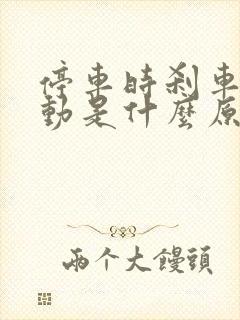 停車時剎車
動是什麼原
兩个大饅頭